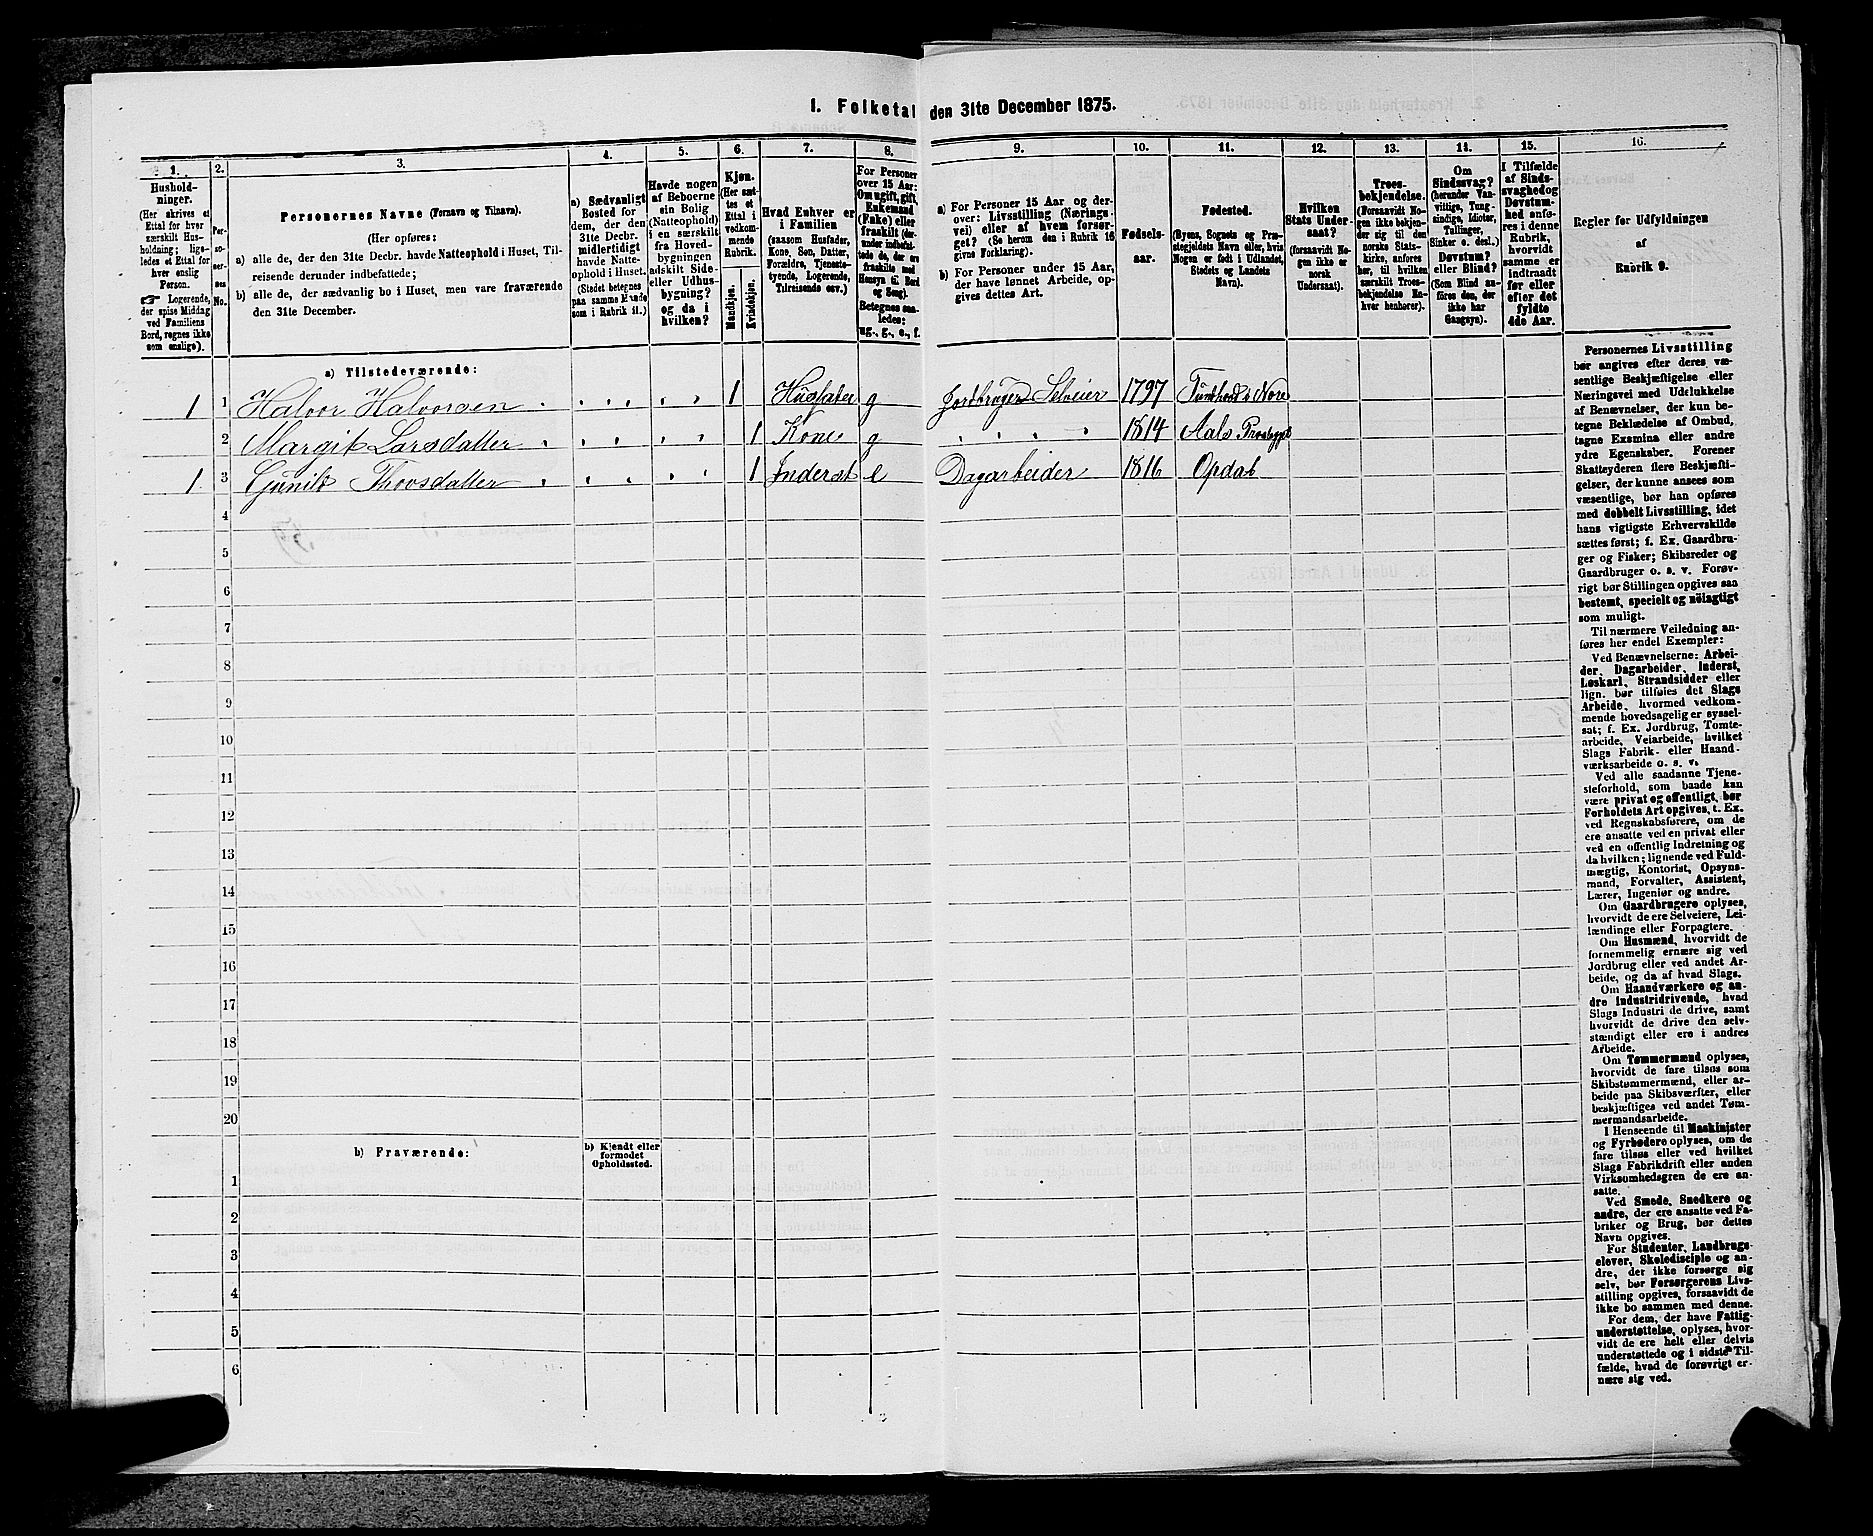 I. Folketal den 31te December 1875.
1. 2. 3. 4. 5. 6. 7. 8. 9. 10. 11. 12. 13. 14. 15. 16.
Hushold-
ninger.
(Her skrives et
Ettal for hver
særskilt Hus-
holdning; lige-
ledes et Ettal for
hver enslig
Person.
☞ Logerende,
der spise Middag
ved Familiens
Bord, regnes ikke
som enslige).
Per-
so-
ner-
nes
No.
Personernes Navne (Fornavn og Tilnavn).
(Her opføres:
a) alle de, der den 31te Decbr. havde Natteophold i Huset, Til-
reisende derunder indbefattede;
b) alle de, der sædvanlig bo i Huset, men vare fraværende
den 31te December.
a) Sædvanligt
Bosted for
dem, der den
31te Decbr.
midlertidigt
havde Natte-
ophold i Huset.
(Stedet betegnes
paa samme Maade
som i Rubrik 11.)
Havde nogen
af Beboerne
sin Bolig
(Natteophold)
i en særskilt
fra Hoved-
bygningen
adskilt Side-
eller Udhus-
bygning?
og da i
hvilken?
Kjøn.
(Her sæt-
tes et
Ettal i
vedkom-
mende
Rubrik.
Mandkjøn.
Kvindekjøn.
Hvad Enhver er
i Familien
(saasom Husfader,
Kone, Søn, Datter,
Forældre, Tjeneste-
tyende, Logerende,
Tilreisende osv.)
For Personer
over 15 Aar:
Om ugift, gift,
Enkemand
(Enke) eller
fraskilt (der-
under indbefat-
tede de, der ere
fraskilte med
Hensyn til Bord
og Seng).
Betegnes saa-
ledes:
ug., g., e., f.
a) For Personer 15 Aar og der-
over: Livsstilling (Nærings-
vei) eller af hvem forsør-
get? (Se herom den i Rubrik 16
givne Forklaring).
b) For Personer under 15 Aar,
der have lønnet Arbeide, op-
gives dettes Art.
Fødsels-
aar.
Fødested.
(Byens, Sognets og Præ-
stegjeldets Navn eller, hvis
Nogen er født i Udlandet,
Stedets og Landets
Navn).
Hvilken
Stats Under-
saat?
(forsaavidt No-
gen ikke er
norsk
Undersaat).
Troes-
bekjendelse.
(Forsaavidt No-
gen ikke bekjen-
der sig til den
norske Stats-
kirke, anføres
her, til hvilken
særskilt Troes-
bekjendelse En-
hver henhører).
Om
Sindssvag?
(herunder Van-
vittige, Tung-
sindige, Idioter,
Tullinger,
Sinker o. desl.)
Døvstum?
eller Blind?
(Som Blind an-
føres den, der
ikke har
Gangsyn).
I Tilfælde
af Sinds-
svaghed og
Døvstum-
hed anfø-
res i denne
Rubrik,
hvorvidt
samme er
indtraadt
før eller
efter det
fyldte
4de Aar.
Regler for Udfyldningen
af
Rubrik 9.
a) Tilstedeværende:
1 1 Halvor Halvorsen 1 Husfader g Jordbruger Selveier 1797 Tunhovd i Nore
2 Margit Larsdatter 1 Kone g 1814 Aals Prestegjæld
1 3 Gunild Thovsdatter 1 Inderst e Dagarbeider 1816 Opdal
4
5
6
7
8
9
10
11
12
13
14
15
16
17
18
19
20
b) Fraværende:
b) Kjendt eller
formodet
Opholdssted.
1
2
3
4
5
6
Personernes Livsstilling
bør angives efter deres væ-
sentlige Beskjæftigelse eller
Næringsvei med Udelukkelse
af Benævnelser, der kun be-
tegne Beklædelse af Ombud,
tagne Examina eller andre
ydre Egenskaber. Forener
Skatteyderen flere Beskjæfti-
gelser, der kunne ansees som
væsentlige, bør han opføres
med dobbelt Livsstilling, idet
hans vigtigste Erhvervskilde
sættes først; f. Ex. Gaardbru-
ger og Fisker; Skibsreder og
Gaardbruger o. s. v. Forøv-
rigt bør Stillingen opgives saa
bestemt, specielt og nöiagtigt
som muligt.
Til nærmere Veiledning an-
føres her endel Exempler:
Ved Benævnelserne: Arbei-
der, Dagarbeider, Inderst,
Løskarl, Strandsidder eller
lign. bør tilføies det Slags
Arbeide, hvormed vedkom-
mende hovedsagelig er syssel-
sat; f. Ex. Jordbrug, Tomte-
arbeide, Veiarbeide, hvilket
Slags Fabrik- eller Haand-
værksarbeide o. s. v.
Ved alle saadanne Tjene-
steforhold, som baade kan
være privat og offentligt, bør
Forholdets Art opgives, t. Ex.
ved Regnskabsførere, om de
ere ansatte ved en privat eller
ved en offentlig Indretning og
da hvilken; lignende ved Fuld-
mægtig, Kontorist, Opsyns-
mand, Forvalter, Assistent,
Lærer, Ingeniør og andre.
Om Gaardbrugere oplyses,
hvorvidt de ere Selveiere, Lei-
lændinge eller Forpagtere.
Om Husmænd, hvorvidt de
fornemmelig ernære sig ved
Jordbrug eller ved andet Ar-
beide, og da af hvad Slags.
Om Haandværkere og an-
dre Industridrivende, hvad
Slags Industri de drive, samt
hvorvidt de drive den selv-
stændigt eller ere i andres
Arbeide.
Om Tømmermænd oplyses,
hvorvidt de fare tilsøs som
Skibstømmermænd, eller ar-
beide paa Skibsværfter, eller
beskjæftiges ved andet Tøm-
mermandsarbeide.
I Henseende til Maskinister
og Fyrbødere oplyses, om de
fare tilsøs eller ved hvilket
Slags Fabrikdrift eller anden
Virksomhedsgren de ere an-
satte.
Ved Smede, Snedkere og
andre, der ere ansatte ved Fa-
briker og Brug, bør dettes
Navn opgives.
For Studenter, Landbrugs-
elever, Skoledisciple og an-
dre, der ikke forsørge sig
selv, bør Forsørgerens Livs-
stilling opgives, forsaavidt de
ikke bo sammen med denne.
For dem, der have Fattig-
understøttelse, oplyses, hvor-
vidt de ere helt eller delvis
understøttede og i sidste Til-
fælde, hvad de forøvrigt er-
nære sig ved.